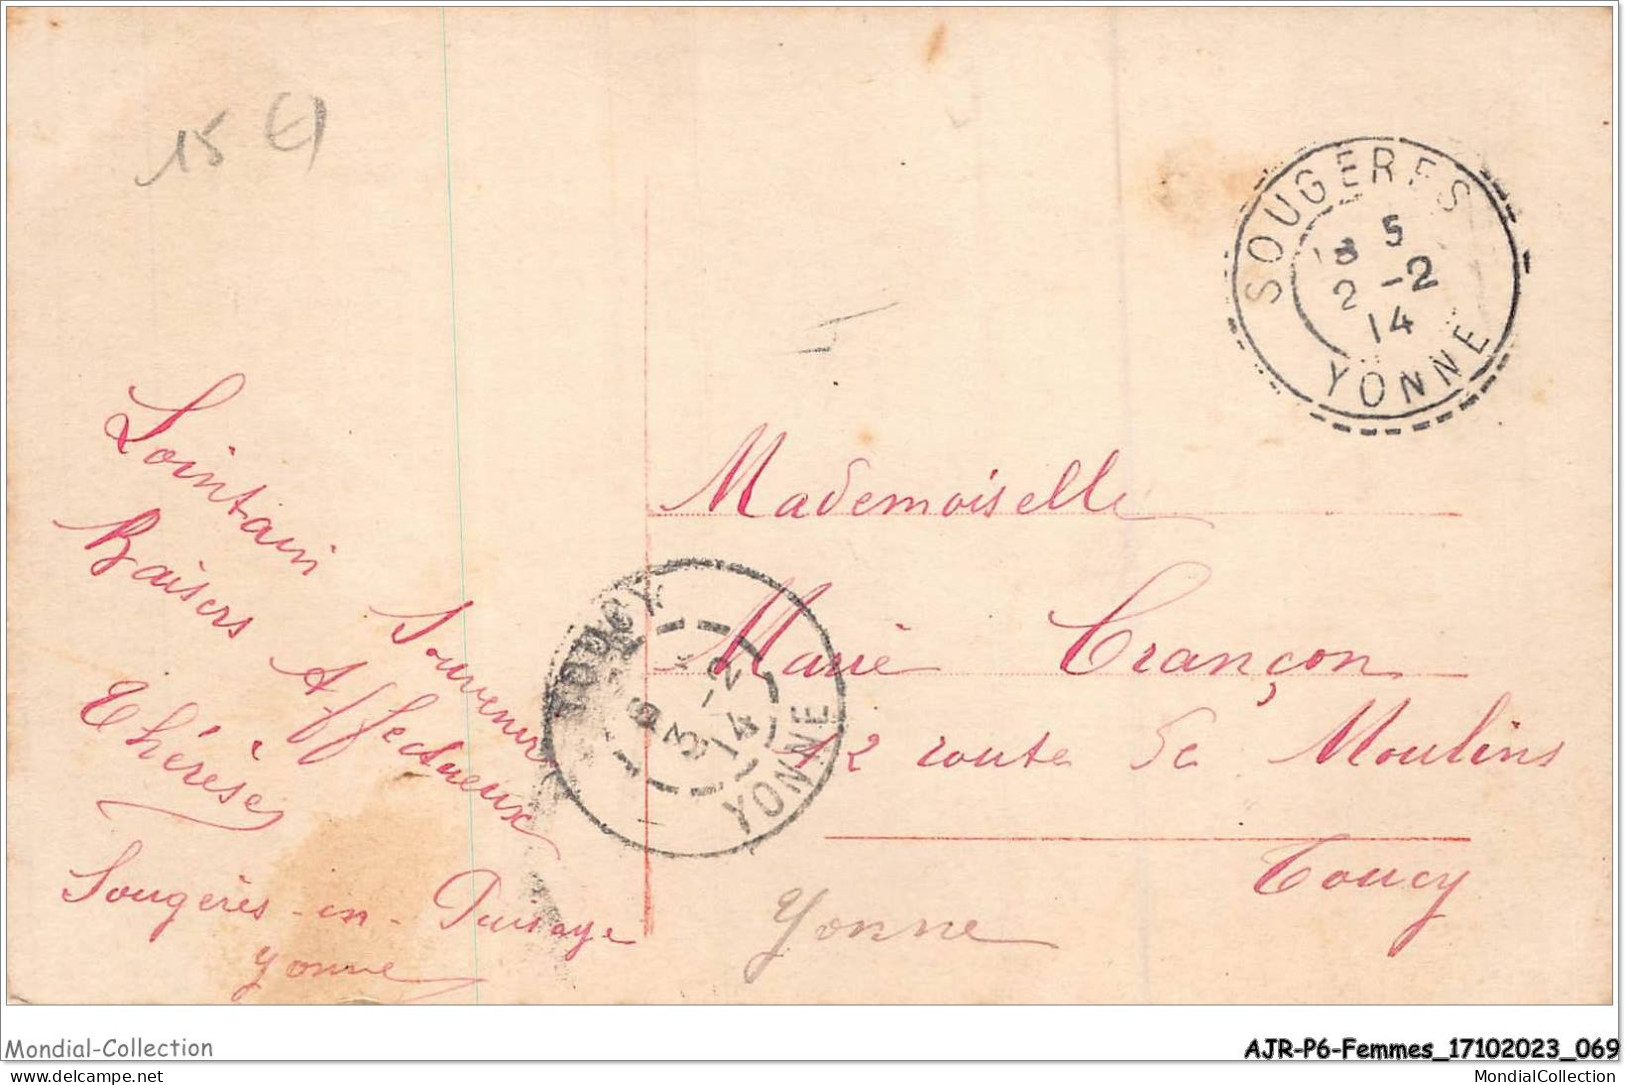 15 €
SOUGERES
18 5
2 -2
14
YONNE
Lointain Souvenir
Baisers Affectueux
Thérèse
Sougères-en-Puisaye
Yonne
Mademoiselle
Marie Crançon
12 route de Moulins
Toucy
Yonne
TOUCY
3 -2
14
YONNE
Mondial-Collection
AJR-P6-Femmes_17102023_069
delcampe.net
MondialCollection